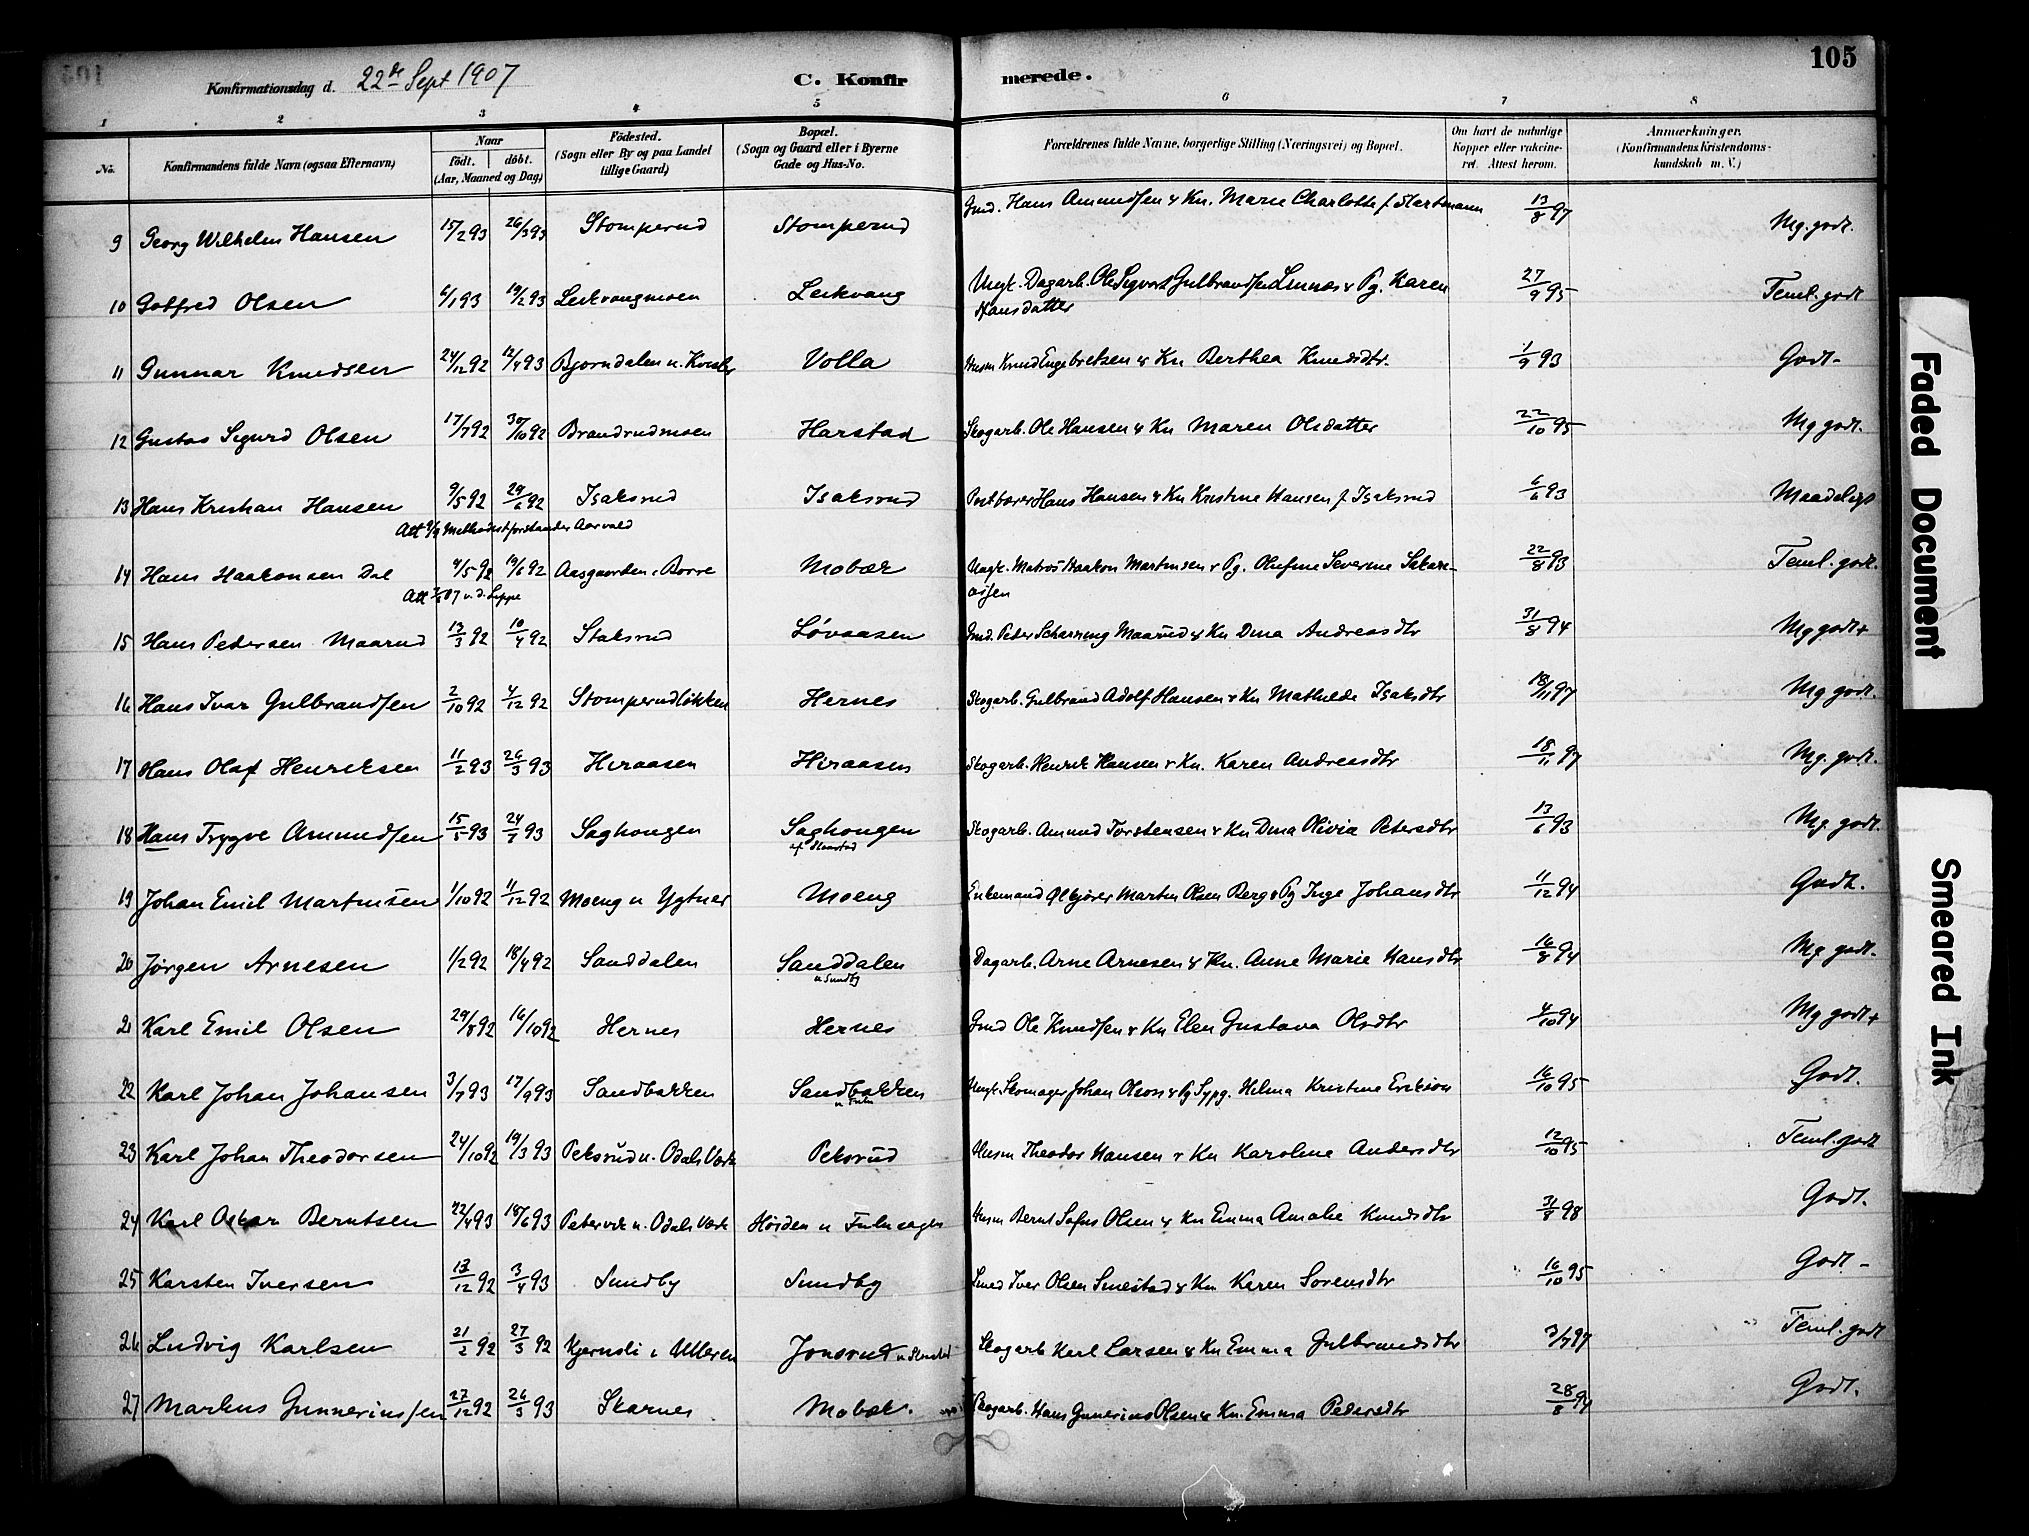 105
Konfirmationsdag d. 22de Sept 1907
C. Konfirmerede.
1 2 3 4 5 6 7 8
No.
Konfirmandens fulde Navn (ogsaa Efternavn)
Naar
født. døbt.
(Aar, Maaned og Dag)
Födested.
(Sogn eller By og paa Landet
tillige Gaard)
Bopæl.
(Sogn og Gaard eller i Byerne
Gade og Hus-No.
Forældrenes fulde Navne, borgerlige Stilling (Næringsvei) og Bopæl.
Om havt de naturlige
Kopper eller vakcine-
ret. Attest herom.
Anmærkninger.
(Konfirmandens Kristendoms-
kundskab m. V.)
9 Georg Wilhelm Hansen 15/2 93 26/3 93 Stomperud Stomperud Gmd. Hans Amundsen & Kn. Marie Charlotte f. Hartmann 13/8 97 Mg. godt.
10 Gotfred Olsen 6/1 93 19/2 93 Leikvangmoen Leikvang Ungk. Dagarb. Ole Sigvart Gulbrandsen Linnæs & Pg. Karen
Hansdatter 27/9 95 Teml. godt
11 Gunnar Knudsen 24/12 92 12/4 93 Bjørndalen u. Volla Husm Knud Engebretsen & Kn Berthea Knudsdtr. 1/9 93 Godt-
12 Gustav Sigurd Olsen 17/7 92 30/10 92 Brandrudmoen Harstad Skogarb. Ole Hansen & Kn Maren Olsdatter 22/10 95 Mg godt.
13 Hans Kristian Hansen 9/5 92 29/6 92 Isaksrud Isaksrud Postbærer Hans Hansen & Kn Kristine Hansen f. Isaksrud 6/6 93 Maadeligt
Att Methodistforstander Aarvold
14 Hans Haakonsen Dal 4/5 92 19/6 92 Aasgaarden i Borre Mobæk Ungk. Matros Haakon Martinsen & Pg. Olufine Severine Sakari-
asen 22/8 93 Teml. godt.
Att 07 v. d.
15 Hans Petersen Maarud 13/3 92 10/4 92 Staksrud Løvaasen Gmd. Peter Maarud & Kn Dina Andreasdtr 31/8 94 Mg godt+
16 Hans Ivar Gulbrandsen 2/10 92 4/12 92 Stomperudløkken Hernes Skogarb. Gulbrand Adolf Hansen & Kn Mathilde Isaksdtr 18/11 97 Mg godt.
17 Hans Olaf Henriksen 11/2 93 26/3 93 Hiraasen Hiraasen Skogarb. Henrik Hansen & Kn. Karen Andreasdtr 18/11 97 Mg. godt.
18 Hans Trygve Amundsen 15/5 93 24/7 93 Saghougen Saghougen
af Harstad Skogarb. Amund Torstensen & Kn Dina Olivia Petersdtr 13/6 93 Mg. godt.
19 Johan Emil Martinsen 1/10 92 11/12 92 Moeng u Ygtner Moeng Enkemand Ølkjører Martin Olsen Berg & Pg Inge Johansdtr 11/12 94 Godt.
20 Jørgen Arnesen 1/2 92 18/4 92 Sanddalen Sanddalen
u Sundby Dagarb. Arne Arnesen & Kn. Anne Marie Hansdtr 16/8 94 Mg. godt.
21 Karl Emil Olsen 29/8 92 16/10 92 Hernes Hernes Gmd Ole Knudsen & Kn Elen Gustava Olsdtr 4/10 94 Mg godt+
22 Karl Johan Johansen 3/7 93 17/9 93 Sandbakken Sandbakken
u Fulu Ungk. Skomager Johan Olsson & Pg Sypg. Hilma Kristine Erikson 16/10 95 Godt.
23 Karl Johan Theodorsen 24/10 92 19/3 93 Peksrud u. Odals Værk Peksrud Husm Theodor Hansen & Kn Karoline Andersdtr 12/10 95 Teml. godt
24 Karl Oskar Berntsen 22/4 93 18/6 93 Petersvik u. Odals Værk u Fulusagen Husm Bernt Sofus Olsen & Kn Emma Amalie Knudsdtr 31/8 98 Godt.
25 Karsten Iversen 13/12 92 3/4 93 Sundby Sundby Smed Iver Olsen Smestad & Kn Karen Sorensdtr 16/10 95 Godt-
26 Ludvig Karlsen 21/2 92 27/3 92 Kjernsli i Ulleren Jonsrud u Harstad Skogarb Karl Larsen & Kn Emma Gulbrandsdtr 3/7 97 Teml. godt
27 Markus Gunneriussen 27/12 92 26/3 93 Skarnes Mobæk. Skogarb. Hans Gunerius Olsen & Kn. Emma Pedersdtr 28/8 94 Godt.
Faded Document
Smeared Ink